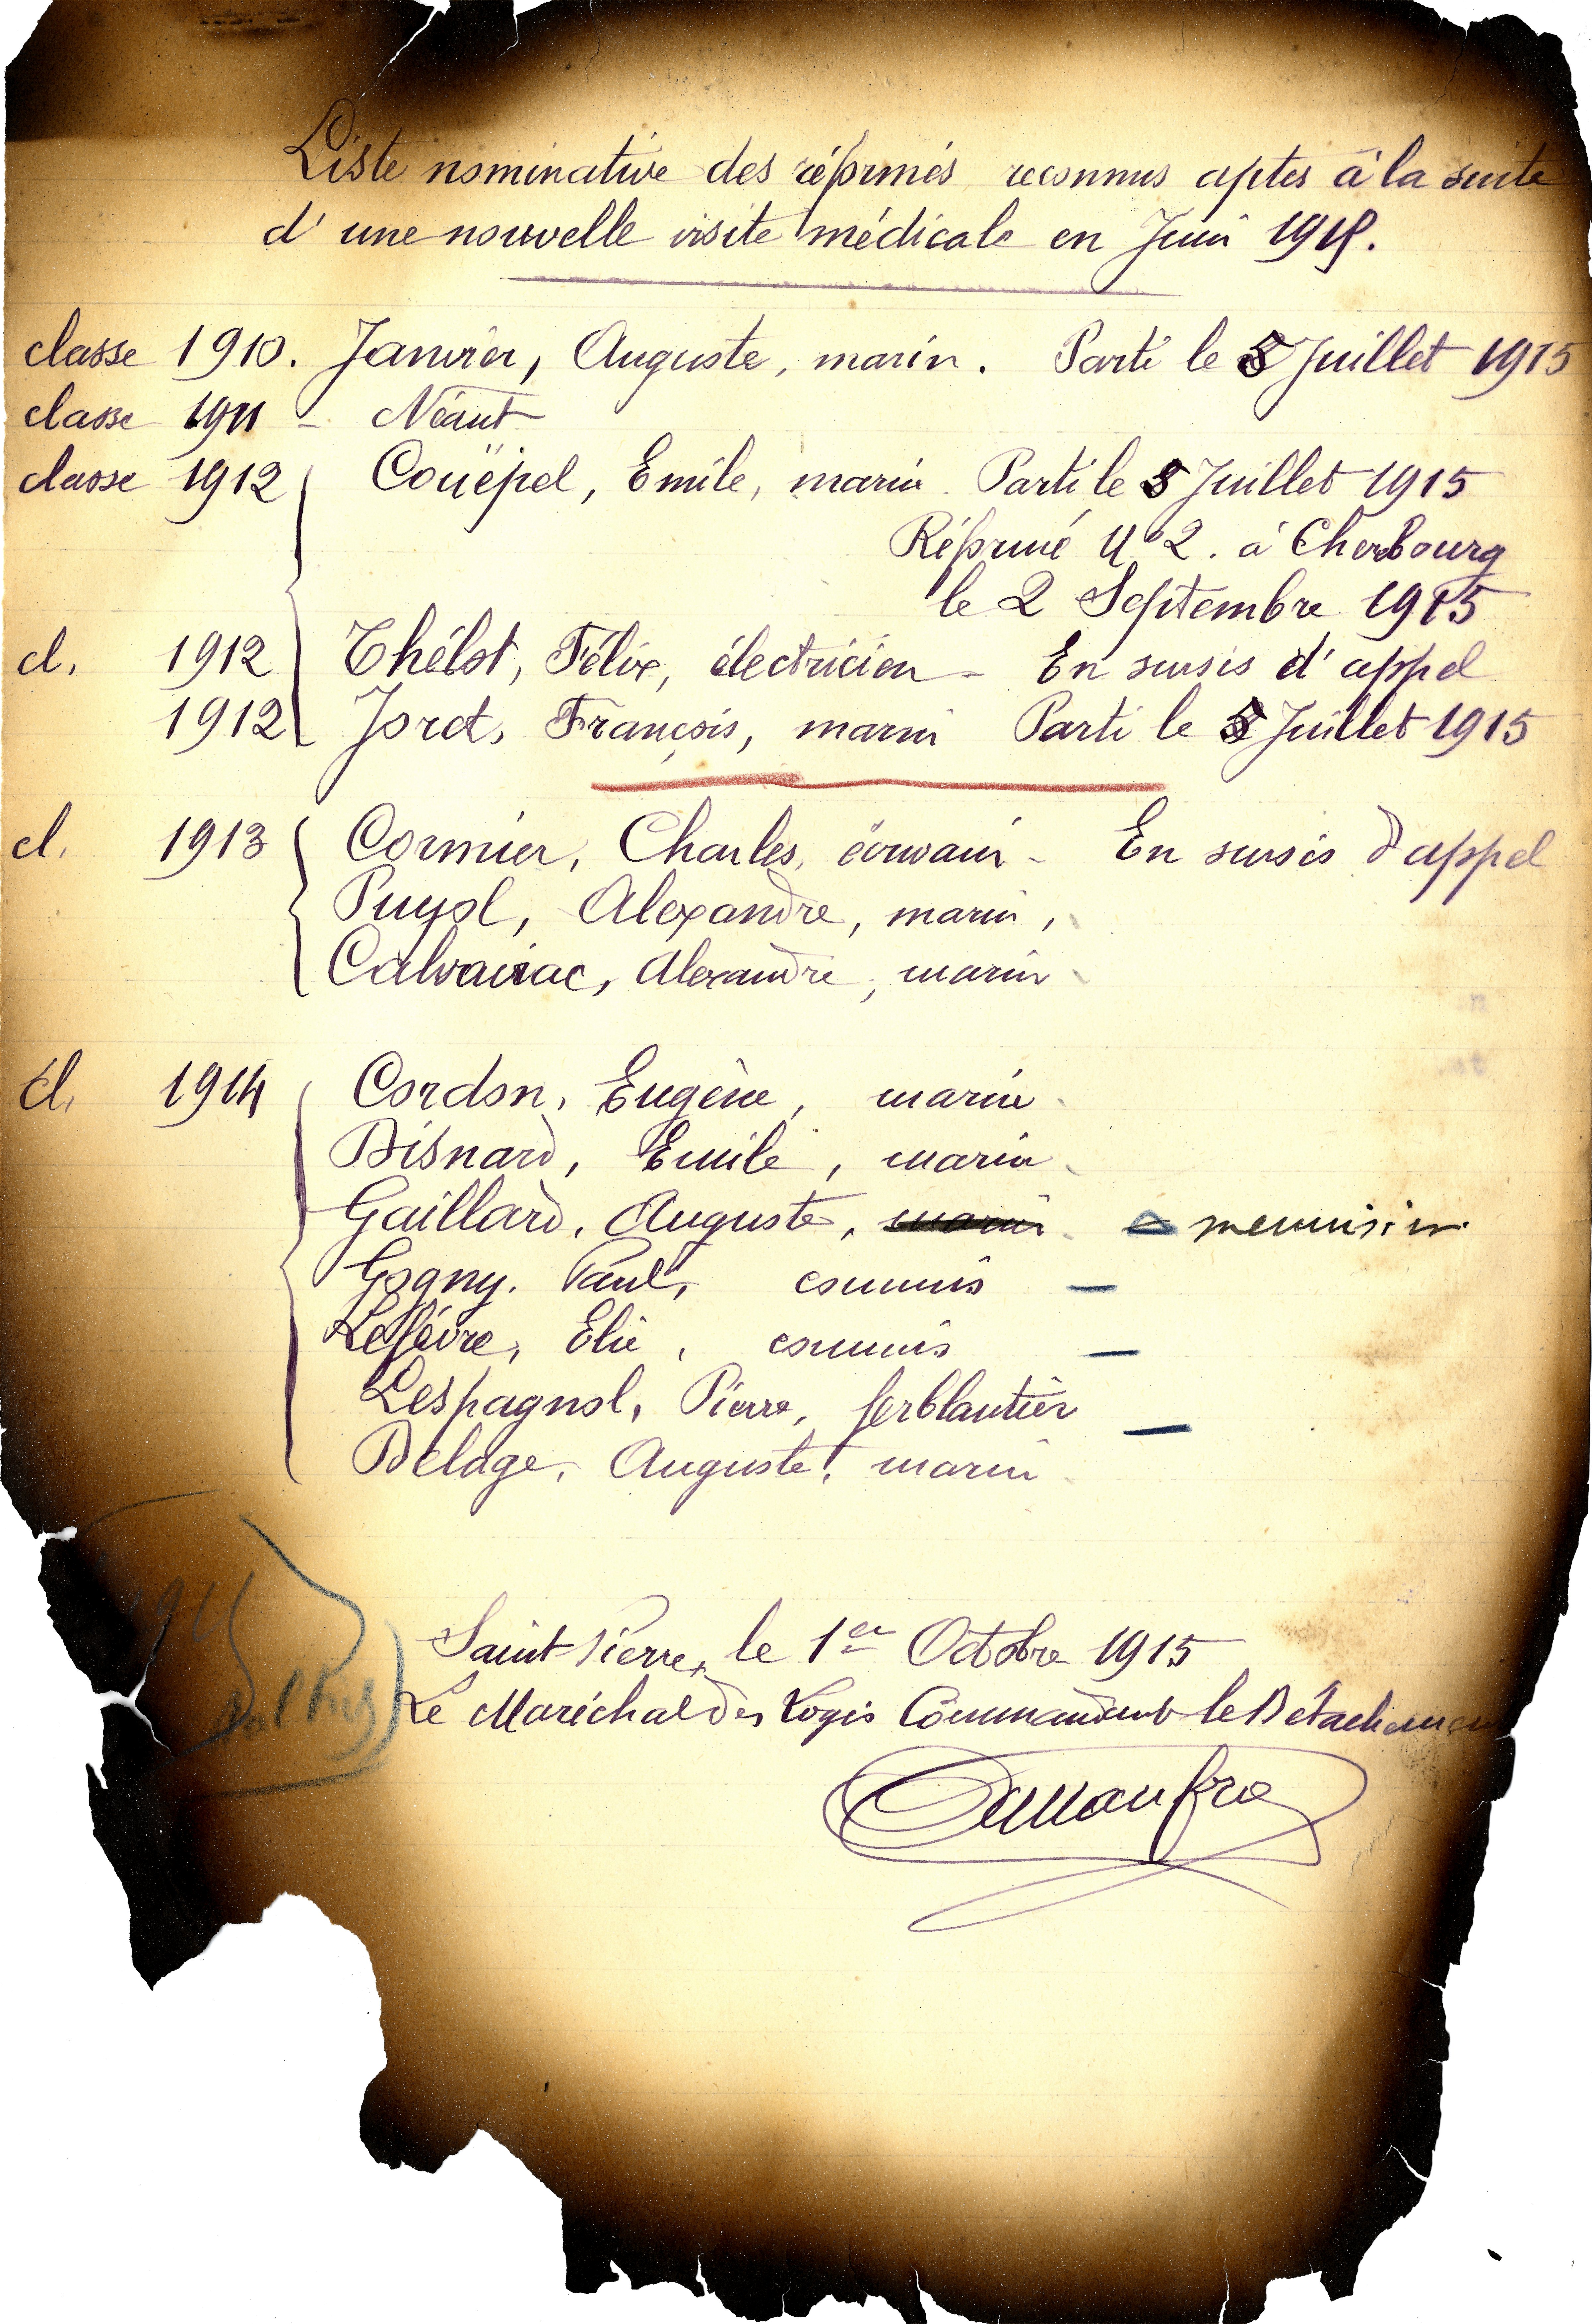 Liste nominative des réformés reconnus aptes à la suite
d'une nouvelle visite médicale en Juin 1915.
classe 1910. Janvier, Auguste, marin. Parti le 5 Juillet 1915
classe 1911 - Néant
classe 1912 Couëpel, Emile, marin Parti le 5 Juillet 1915
Réformé N°2. à Cherbourg
le 2 Septembre 1915
cl. 1912 Thélot, Félix, électricien - En sursis d'appel
1912 Joret, François, marin Parti le 5 Juillet 1915
cl. 1913 Cormier, Charles, écrivain - En sursis d'appel
Puyol, Alexandre, marin,
Calvairac, Alexandre, marin
cl. 1914 Cordon, Eugène, marin
Disnard, Emile, marin
Gaillard, Auguste, marin menuisier
Gogny. Paul, commis —
Lefèvre, Elie, commis —
Lespagnol, Pierre, ferblantier —
Delage, Auguste, marin
Saint-Pierre, le 1er Octobre 1915
Le Maréchal des Logis Commandant le Détachement